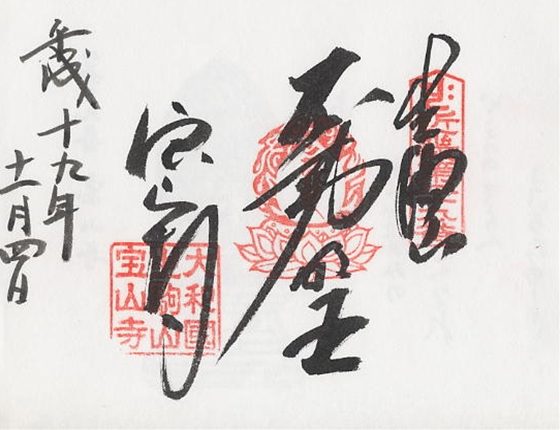 奉拝
不動明王
宝山寺
平成十九年
十一月四日
大和國
生駒山
宝山寺